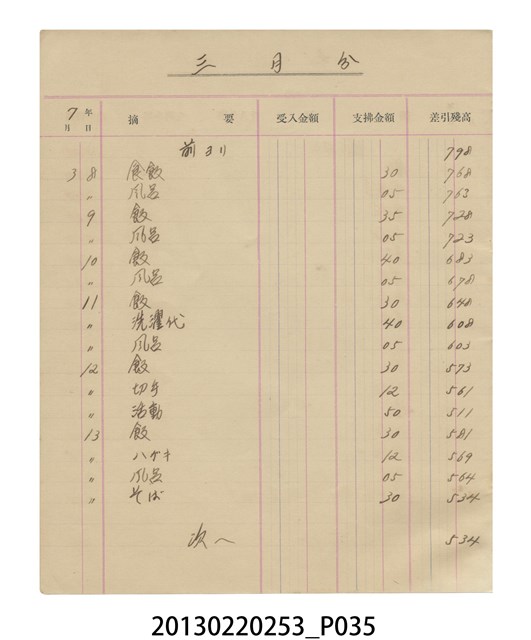 三月分
7年
月 日 摘要 受入金額 支拂金額 差引殘高
前ヨリ 798
3 8 食飯 30 768
〃 風呂 05 763
9 飯 35 728
〃 風呂 05 723
10 飯 40 683
〃 風呂 05 678
11 飯 30 648
〃 洗濯代 40 608
〃 風呂 05 603
12 飯 30 573
〃 切手 12 561
〃 活動 50 511
13 飯 30 581
〃 ハガキ 12 569
〃 風呂 05 564
〃 そば 30 534
次へ 534
20130220253_P035